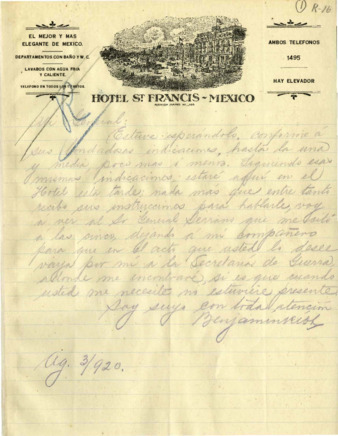 ① R-16
EL MEJOR Y MAS
ELEGANTE DE MEXICO.
DEPARTAMENTOS CON BAÑO Y W. C.
LAVABOS CON AGUA FRIA
Y CALIENTE.
TELEFONO EN TODOS LOS
AMBOS TELEFONOS
1495
HAY ELEVADOR
HOTEL ST FRANCIS - MEXICO
General:
Estuve esperándolo, conforme á
sus bondadosas indicaciones, hasta la una
y media poco mas ó menos. Siguiendo esas
mismas indicaciones estaré aquí en el
Hotel esta tarde, nada mas que entre tanto
recibo sus instrucciones para hablarle, voy
a ver al Sr General Serrano que me citó
a las cinco, dejando a mi compañero
para que en el acto que usted lo desee
vaya por mi a la Secretaría de Guerra
a donde me encontrará, si es que cuando
usted me necesite no estuviere presente.
Soy suyo con toda atención
Benjamin
Ag. 3/920.